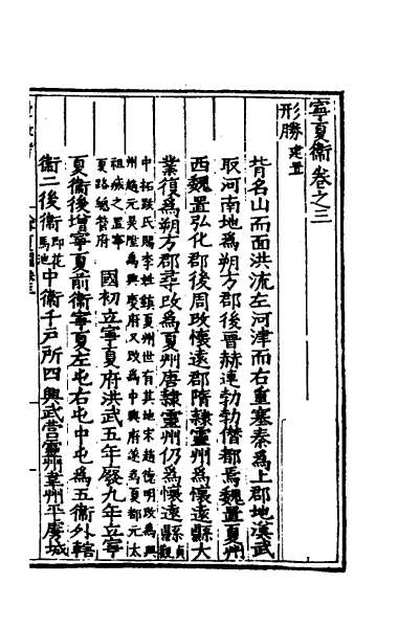 寧夏衞卷之三
形勝 建置
背名山而面洪流左河津而右重塞秦爲上郡地漢武
取河南地爲朔方郡後晉赫連勃勃僭都焉魏置夏州
西魏置弘化郡後周改懷遠郡隋隸靈州爲懷遠縣大
業復爲朔方郡尋改爲夏州唐隸靈州仍爲懷遠縣貞觀
中拓跋氏賜李姓鎮夏州世有其地宋趙德明改爲興
州趙元昊陞爲興慶府又改爲中興府遂爲夏都元太
祖疾之置寧
夏路總管府 國初立寧夏府洪武五年廢九年立寧
夏衞後增寧夏前衞寧夏左屯右屯中屯爲五衞外轄
衞二後衞即花馬池中衞千戶所四興武營靈州韋州平虜城